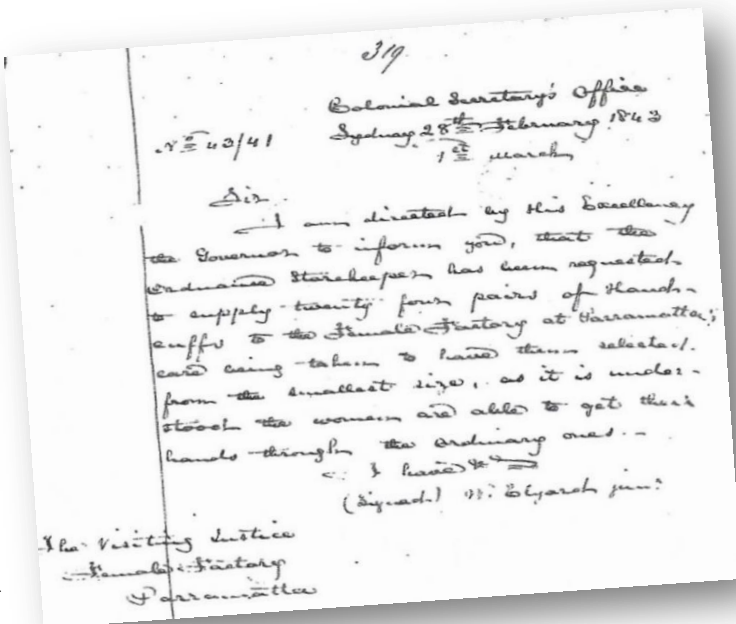 319
Colonial Secretary's Office
Sydney 28th February 1843
No 43/41
1st March
Sir
I am directed by His Excellency
the Governor to inform you, that the
Ordnance Storekeeper has been requested
to supply twenty four pairs of Hand-
cuffs to the Female Factory at Parramatta;
care being taken to have them selected
from the smallest size, as it is under-
stood the women are able to get their
hands through the ordinary ones. -
I have &c
(Signed) W. Elyard jun:
The Visiting Justice
Female Factory
Parramatta